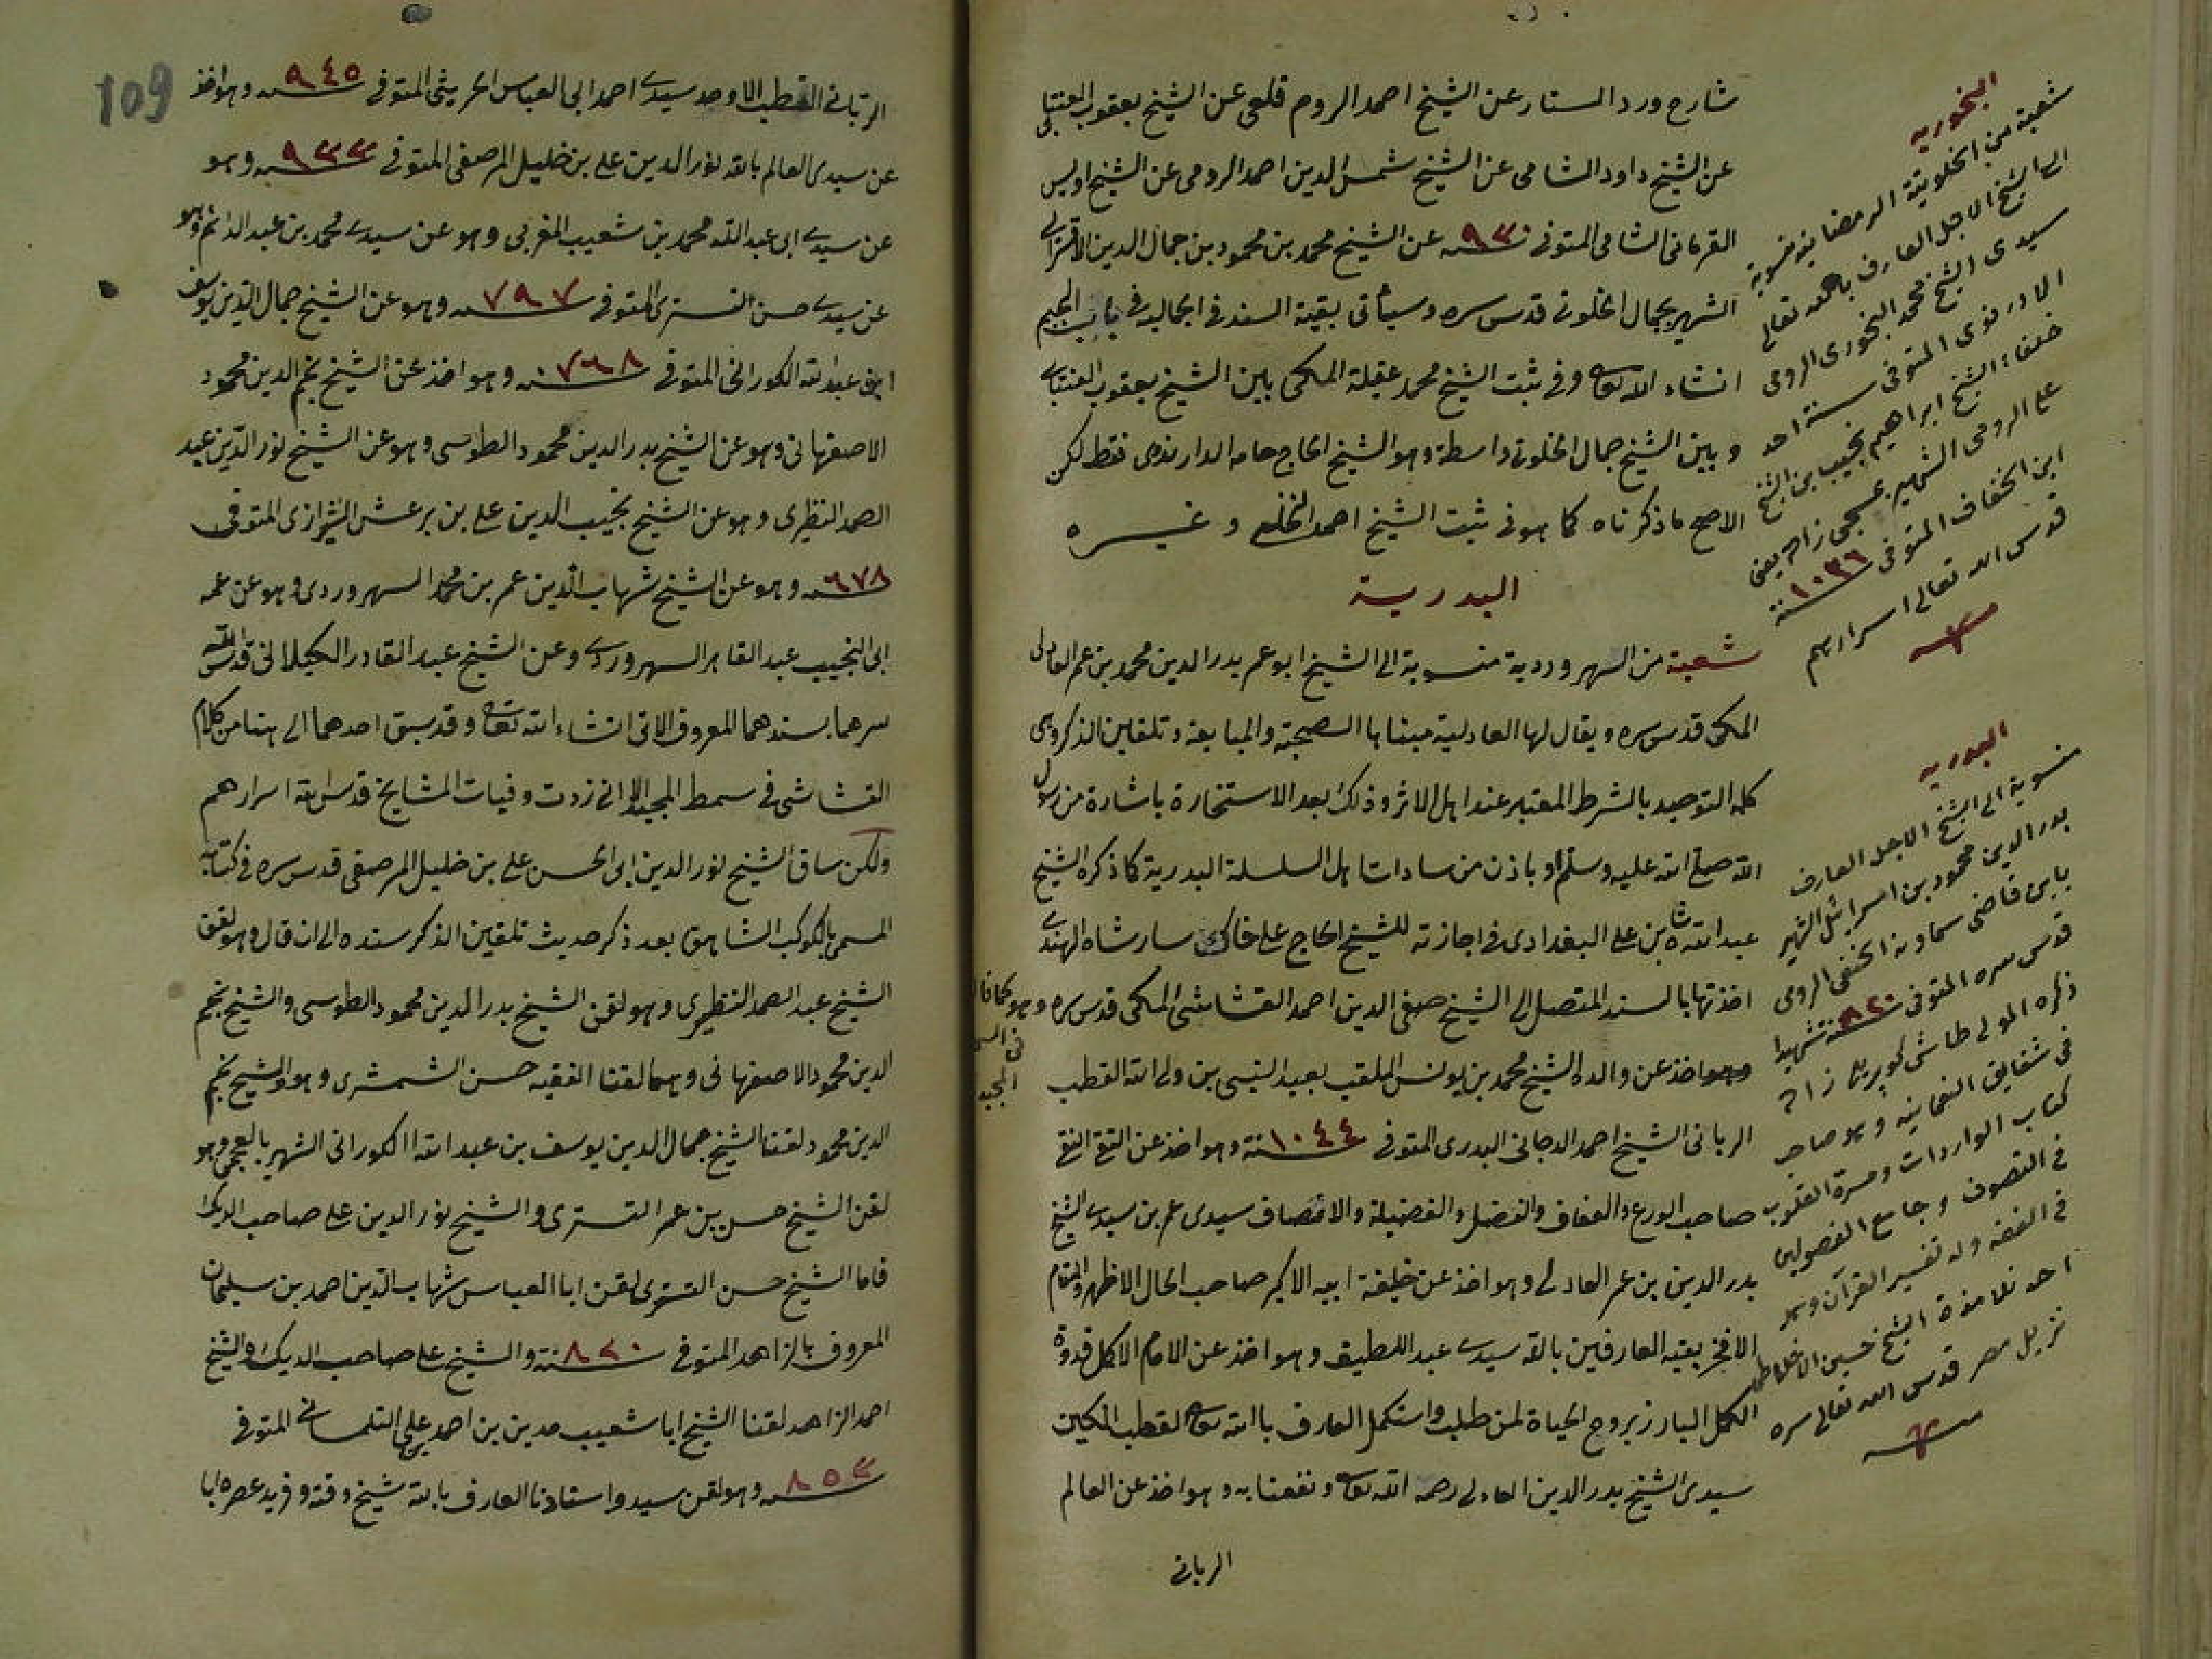 شارح ورد الستار عن الشيخ احمد الروم قلعى عن الشيخ يعقوب العنتابى
عن الشيخ داود الشامى عن الشيخ شمس الدين احمد الرومى عن الشيخ اويس
القرمانى الشامى المتوفى سنه ٩٣٠ عن الشيخ محمد بن محمود بن جمال الدين الاقسرائى
الشهير بجمال الخلوتى قدس سره وسيأتى بقية السند فى الجماليه فى باب الجيم
انشاء الله تعالى وفى ثبت الشيخ محمد عقيلة المكى بين الشيخ يعقوب العنتابى
وبين الشيخ جمال الخلوتى واسطة وهو الشيخ الحاج حامد الدارندى فقط لكن
الاصح ما ذكرناه كما هو فى ثبت الشيخ احمد النخلى وغيره
البدرية
شعبة من السهروردية منسوبة الى الشيخ ابو عمر بدر الدين محمد بن عمر العادلى
المكى قدس سره ويقال لها العادلية مبناها الصحبة والمبايعة وتلقين الذكر وهى
كلمة التوحيد بالشرط المعتبر عند اهل الاثر وذلك بعد الاستخارة باشارة من رسول
الله صلى الله عليه وسلم او باذن من سادات اهل السلسلة البدرية كما ذكره الشيخ
عبد الله شاه بن على البغدادى فى اجازته للشيخ الحاج على خاكسار شاه الهندى
اخذتها بالسند المتصل الى الشيخ صفى الدين احمد القشاشى المكى قدس سره وهو كما قال
فى السمط
المجيد
وهو اخذ عن والده الشيخ محمد بن يونس الملقب بعبد النبى بن ولى الله القطب
الربانى الشيخ احمد الدجانى البدرى المتوفى سنة ١٠٤٤ وهو اخذ عن التقى النقى
صاحب الورع والعفاف والفضل والفضيلة والاتصاف سيدى عمر بن سيدى الشيخ
بدر الدين بن عمر العادلى وهو اخذ عن خليفة ابيه الاكبر صاحب الحال الاظهر والمقام
الافخر بقية العارفين بالله سيدى عبد اللطيف وهو اخذ عن الامام الاكمل قدوة
الكمل البارز بروح الحياة لمن طلب واستكمل العارف بالله تعالى القطب المكين
سيدى الشيخ بدر الدين العادلى رحمه الله تعالى ونفعنا به وهو اخذ عن العالم
الربانى
البخوريه
شعبة من الخلوتية الرمضانية منسوبة
الى الشيخ الاجل العارف بالله تعالى
سيدى الشيخ محمد البخورى الرومى
الادرنوى المتوفى سنة احد
خلفاء الشيخ ابراهيم نجيب بن الشيخ
على الرومى الشهير بمسجى زاده يعنى
ابن الخفاف المتوفى سنة ١٠٣٦
قدس الله تعالى اسرارهم
البدريه
منسوبة الى الشيخ الاجل العارف
بدر الدين محمود بن اسرائيل الشهير
بابن قاضى سماونه الحنفى الرومى
قدس سره المتوفى سنة ٨٢٠ شهيدا
ذكره المولى طاش كوپرى زاده
فى شقايق النعمانيه وهو صاحب
كتاب الواردات ومسرة القلوب
فى التصوف وجامع الفصولين
فى الفقه وله تفسير القرآن وهو
احد تلامذة الشيخ حسين الاخلاطى
نزيل مصر قدس الله تعالى سره
109
الربانى القطب الاوحد سيدى احمد ابى العباس الحريثى المتوفى سنه ٩٤٥ وهو اخذ
عن سيدى العالم بالله نور الدين على بن خليل المرصفى المتوفى سنه ٩٣٣ وهو
عن سيدى ابى عبد الله محمد بن شعيب المغربى وهو عن سيدى محمد بن عبد الدائم وهو
عن سيدى حسن التسترى المتوفى سنه ٧٩٧ وهو عن الشيخ جمال الدين يوسف
ابن عبد الله الكورانى المتوفى سنه ٧٦٨ وهو اخذ عن الشيخ نجم الدين محمود
الاصفهانى وهو عن الشيخ بدر الدين محمود الطوسى وهو عن الشيخ نور الدين عبد
الصمد النظرى وهو عن الشيخ نجيب الدين على بن برعش الشيرازى المتوفى
سنه ٦٧٨ وهو عن الشيخ شهاب الدين عمر بن محمد السهروردى وهو عن عمه
ابى النجيب عبد القاهر السهروردى وعن الشيخ عبد القادر الكيلانى قدس الله
سرهما بسندهما المعروف الاتى انشاء الله تعالى وقد سبق احدهما الى هنا من كلام
القشاشى فى سمط المجيد الا انى زدت وفيات المشايخ قدس الله اسرارهم
ولكن ساق الشيخ نور الدين ابى الحسن على بن خليل المرصفى قدس سره فى كتابه
المسمى بالكوكب الشاهق بعد ذكر حديث تلقين الذكر سنده الى ان قال وهو لقن
الشيخ عبد الصمد النظيرى وهو لقن الشيخ بدر الدين محمود الطوسى والشيخ نجم
الدين محمود الاصفهانى وهما لقنا الفقيه حسن الشمشرى وهو والشيخ نجم
الدين محمود لقنا الشيخ جمال الدين يوسف بن عبد الله الكورانى الشهير بالعجمى وهو
لقن الشيخ حسن بن عمر التسترى والشيخ نور الدين على صاحب الديك
فاما الشيخ حسن التسترى لقن ابا العباس شهاب الدين احمد بن سليمان
المعروف بالزاهد المتوفى سنة ٨٢٠ والشيخ على صاحب الديك والشيخ
احمد الزاهد لقنا الشيخ ابا شعيب مدين بن احمد بن على التلمسانى المتوفى
سنه ٨٥٣ وهو لقن سيد واستاذنا العارف بالله شيخ وقته وفريد عصره ابا